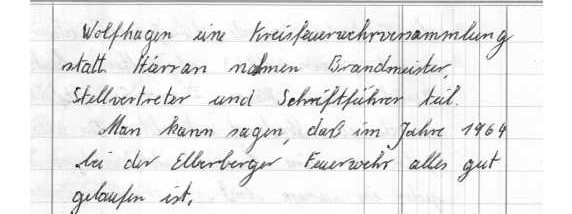 Wolfhagen eine Kreisfeuerwehrversammlung
statt. Hieran nahmen Brandmeister,
Stellvertreter und Schriftführer teil.
Man kann sagen, daß im Jahre 1964
bei der Elberberger Feuerwehr alles gut
gelaufen ist.